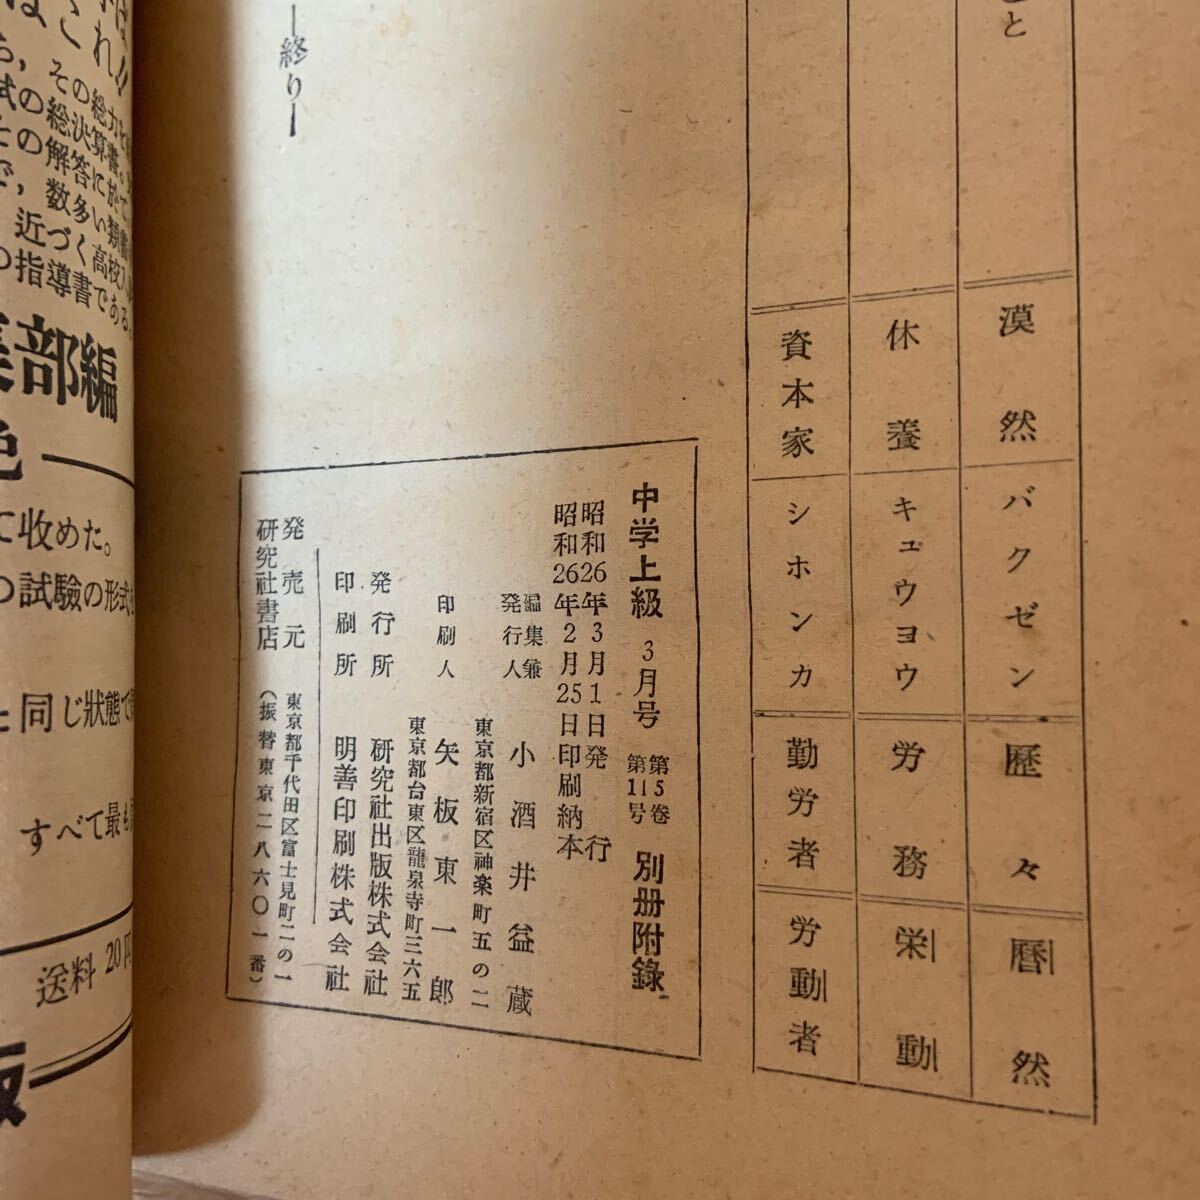 と
漠然
バクゼン
歴々
暦然
休養
キュウヨウ
労務
栄動
資本家
シホンカ
勤労者
労動者
―終り―
中学上級 3月号 第5巻 第11号 別册附錄
昭和26年3月1日発行
昭和26年2月25日印刷納本
編集兼発行人 小酒井益蔵
東京都新宿区神楽町五の二
印刷人 矢板東一郎
東京都台東区龍泉寺町三六五
発行所 研究社出版株式会社
印刷所 明善印刷株式会社
発売元 東京都千代田区富士見町二の一
研究社書店 (振替東京二八六〇一番)
これ!!
その総力を
の総決算書。
の解答に於て
数多い類書
近づく高校入
の指導書である。
部編
て収めた。
の試驗の形式
同じ狀態で
すべて最も
送料 20円
版